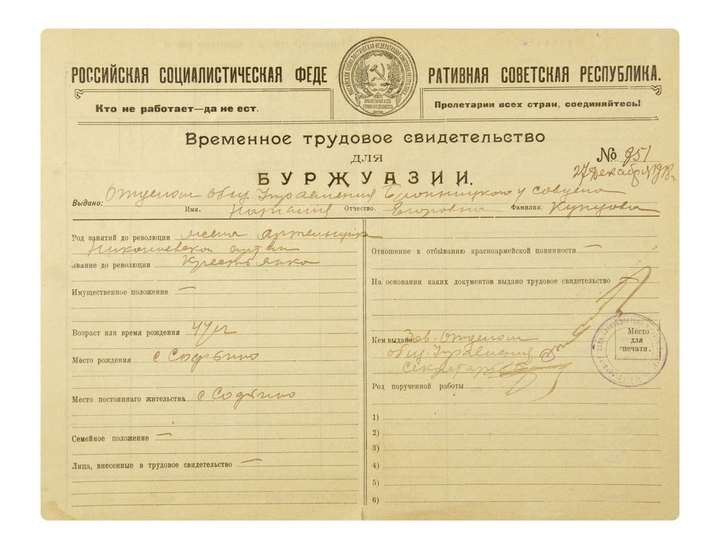 РОССИЙСКАЯ СОЦИАЛИСТИЧЕСКАЯ ФЕДЕ РАТИВНАЯ СОВЕТСКАЯ РЕСПУБЛИКА.
Кто не работает—да не ест. Пролетарии всех стран, соединяйтесь!
Временное трудовое свидетельство
ДЛЯ
БУРЖУАЗИИ.
№ 951
27 декабря 1918 г.
Выдано: Отделом общ. Управления совдепа
Имя. Наталия Отчество. Егоровна Фамилия. Купцова
Род занятий до революции
Звание до революции Крестьянка
Имущественное положение —
Возраст или время рождения 44 г
Место рождения с
Место постоянного жительства с
Семейное положение —
Лица, внесенные в трудовое свидетельство —
Отношение к отбыванию красноармейской повинности —
На основании каких документов выдано трудовое свидетельство
Кем выдано Зав. Отделом
общ. Управления
Секретарь
Место
для
печати.
Род порученной работы
1)
2)
3)
4)
5)
6)